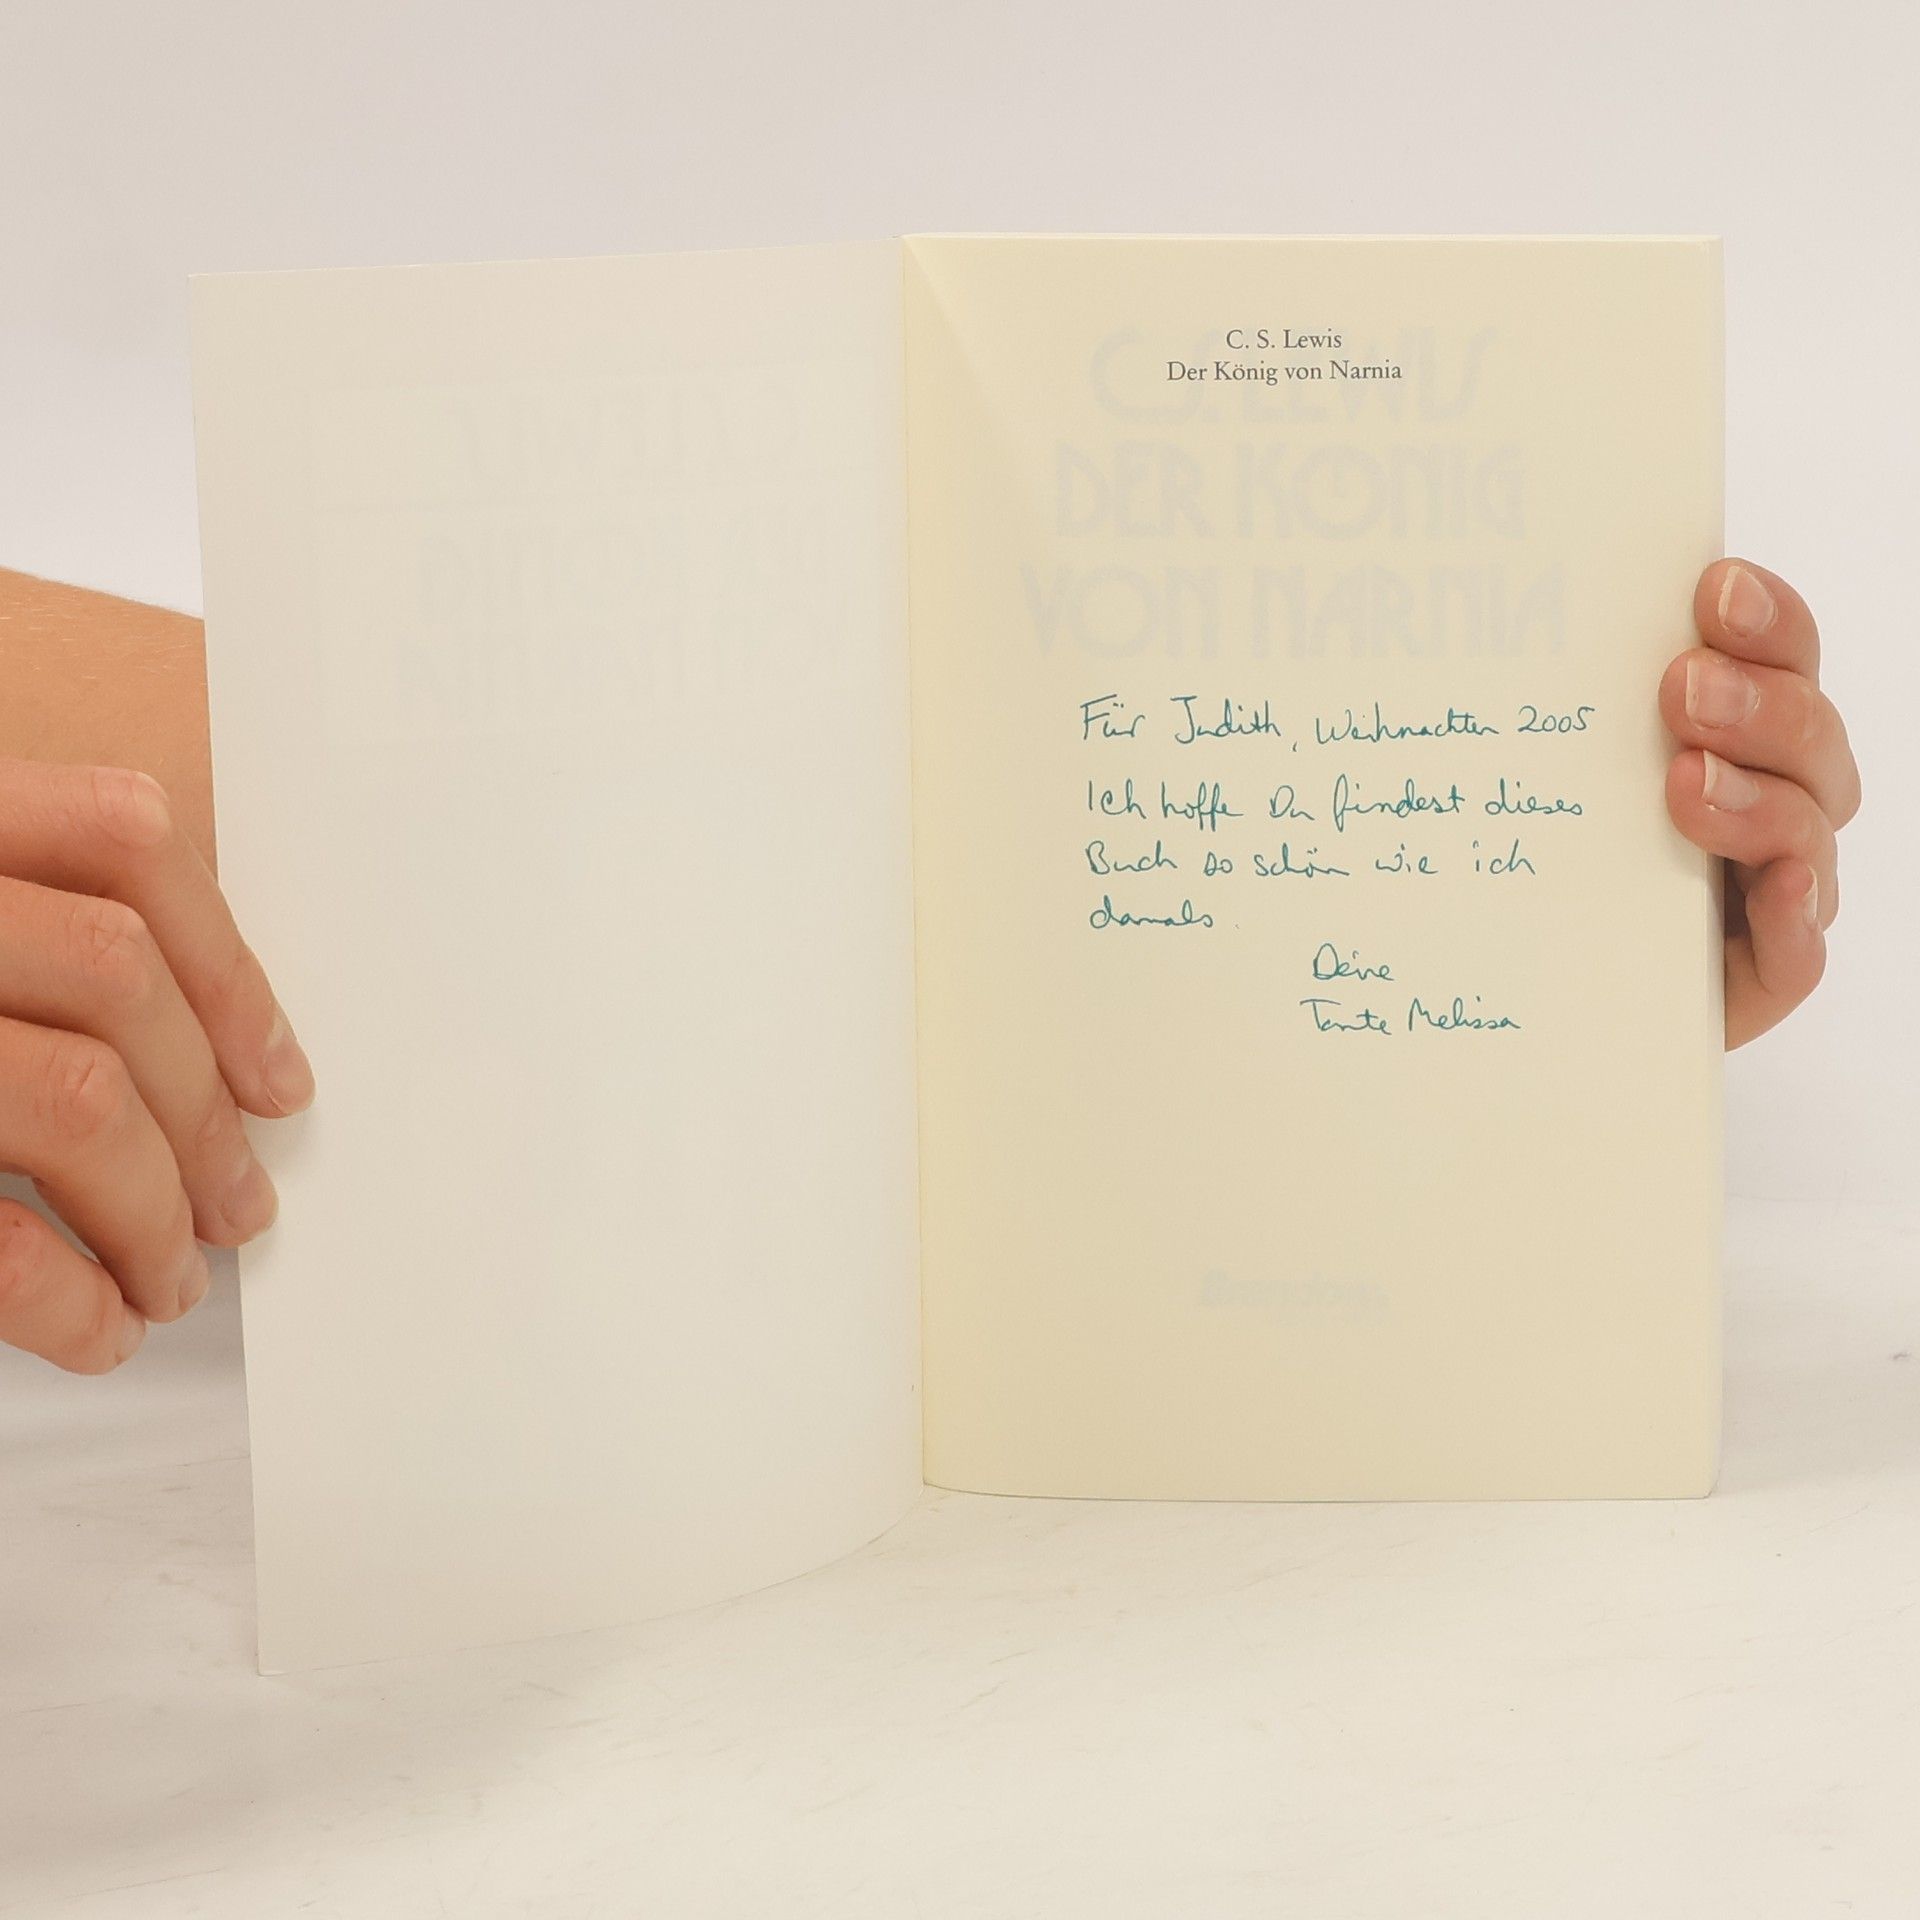 C. S. Lewis
Der König von Narnia
C.S. LEWIS
DER KÖNIG
VON NARNIA
Für Judith, Weihnachten 2005
Ich hoffe Du findest dieses
Buch so schön wie ich
damals.
Deine
Tante Melissa